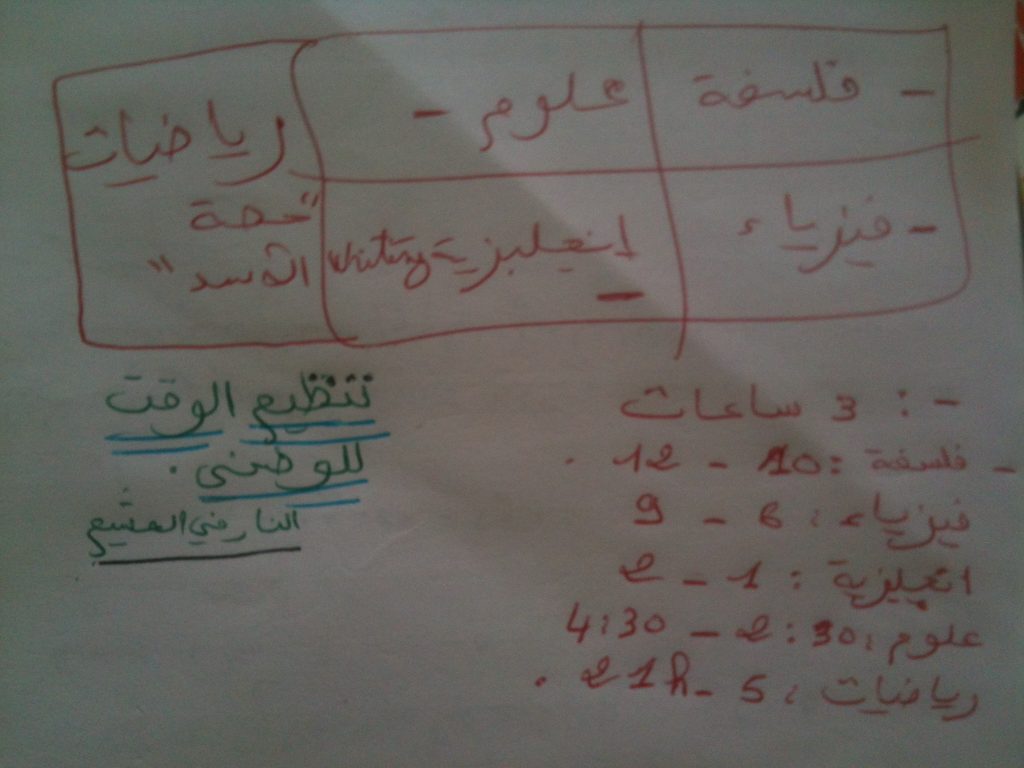 - فلسفة
علوم -
رياضيات
- فيزياء
انجليزية Writing -
"حصة
الأسد"
- : 3 ساعات
- فلسفة : 10 - 12 .
فيزياء : 6 - 9
انجليزية : 1 - 2
علوم : 2:30 - 4:30
رياضيات : 5 - 21h .
تنظيم الوقت
للوطني .